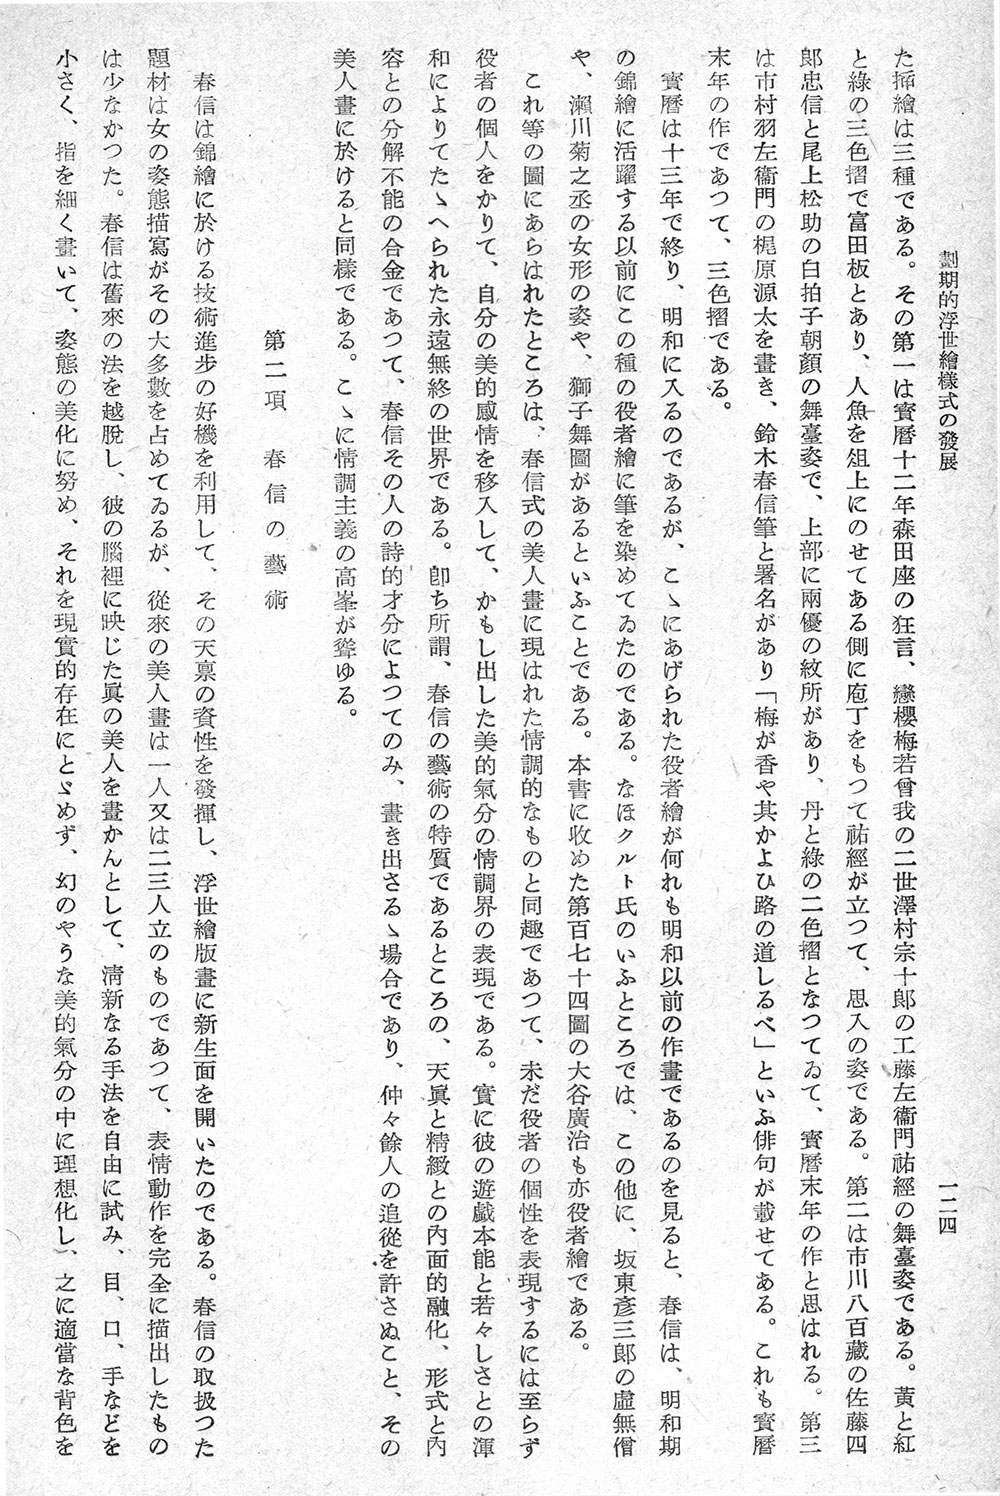 劃期的浮世繪樣式の發展
一二四
た揷繪は三種である。その第一は寳曆十二年森田座の狂言、戀櫻梅若曾我の二世澤村宗十郎の工藤左衞門祐經の舞臺姿である。黃と紅
と綠の三色摺で富田板とあり、人魚を俎上にのせてある側に庖丁をもつて祐經が立つて、思入の姿である。第二は市川八百藏の佐藤四
郎忠信と尾上松助の白拍子朝顏の舞臺姿で、上部に兩優の紋所があり、丹と綠の二色摺となつてゐて、寳曆末年の作と思はれる。第三
は市村羽左衞門の梶原源太を畫き、鈴木春信筆と署名があり「梅が香や其かよひ路の道しるべ」といふ俳句が載せてある。これも寳曆
末年の作であつて、三色摺である。
寳曆は十三年で終り、明和に入るのであるが、こゝにあげられた役者繪が何れも明和以前の作畫であるのを見ると、春信は、明和期
の錦繪に活躍する以前にこの種の役者繪に筆を染めてゐたのである。なほクルト氏のいふところでは、この他に、坂東彥三郎の虛無僧
や、瀨川菊之丞の女形の姿や、獅子舞圖があるといふことである。本書に收めた第百七十四圖の大谷廣治も亦役者繪である。
これ等の圖にあらはれたところは、春信式の美人畫に現はれた情調的なものと同趣であつて、未だ役者の個性を表現するには至らず
役者の個人をかりて、自分の美的感情を移入して、かもし出した美的氣分の情調界の表現である。實に彼の遊戲本能と若々しさとの渾
和によりてたゝへられた永遠無終の世界である。卽ち所謂、春信の藝術の特質であるところの、天眞と精緻との內面的融化、形式と內
容との分解不能の合金であつて、春信その人の詩的才分によつてのみ、畫き出さるゝ場合であり、仲々餘人の追從を許さぬこと、その
美人畫に於けると同樣である。こゝに情調主義の高峯が聳ゆる。
第二項　春信の藝術
春信は錦繪に於ける技術進步の好機を利用して、その天禀の資性を發揮し、浮世繪版畫に新生面を開いたのである。春信の取扱つた
題材は女の姿態描寫がその大多數を占めてゐるが、從來の美人畫は一人又は二三人立のものであつて、表情動作を完全に描出したもの
は少なかつた。春信は舊來の法を越脫し、彼の腦裡に映じた眞の美人を畫かんとして、淸新なる手法を自由に試み、目、口、手などを
小さく、指を細く畫いて、姿態の美化に努め、それを現實的存在にとゞめず、幻のやうな美的氣分の中に理想化し、之に適當な背色を